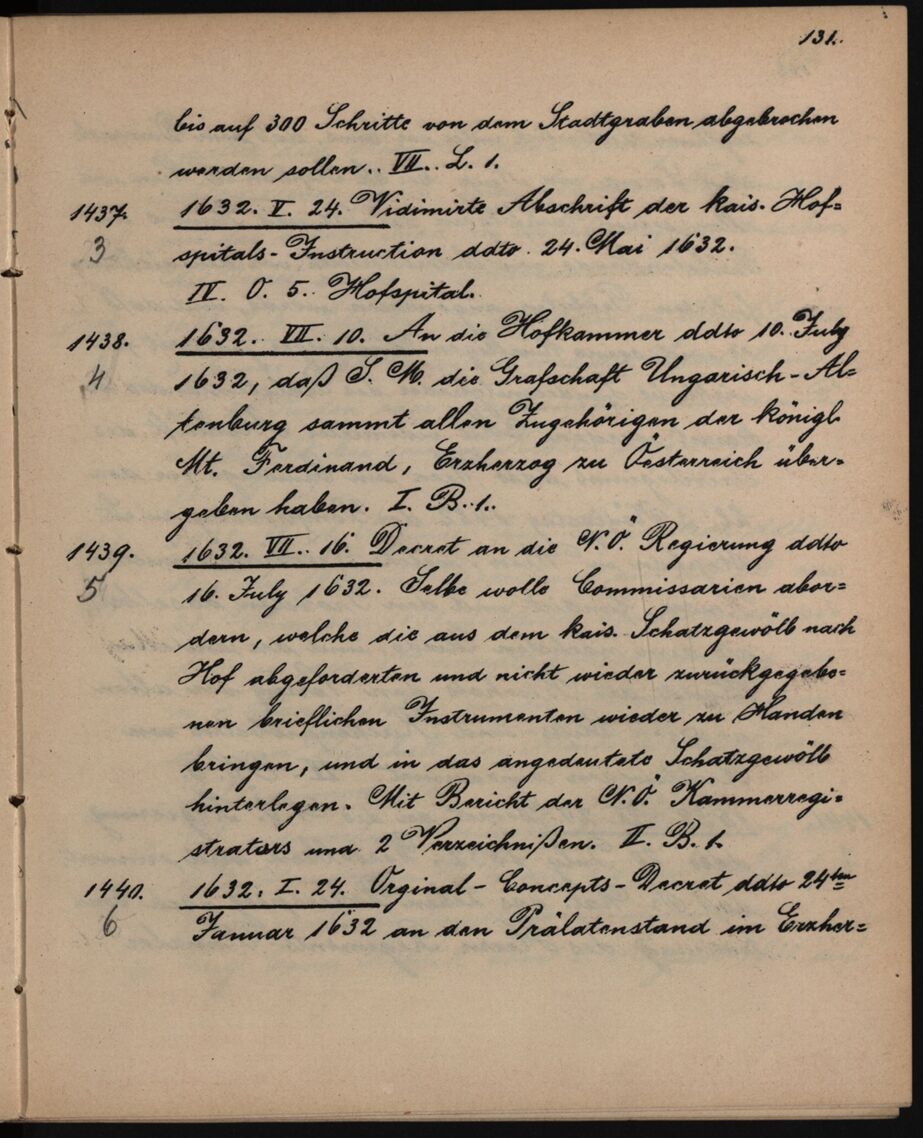 131.
bis auf 300 Schritte von dem Stadtgraben abgebrochen
werden sollen. VII. L. 1.
1437. 1632. V. 24. Vidimirte Abschrift der kais. Hof=
3 spitals-Instruction ddto 24. Mai 1632.
IV. O. 5. Hofspital.
1438. 1632. VII. 10. An die Hofkammer ddto 10. July
4 1632, daß S. M. die Grafschaft Ungarisch-Al=
tenburg sammt allen Zugehörigen der königl.
Mt. Ferdinand, Erzherzog zu Österreich über=
geben haben. I. B. 1.
1439. 1632. VII. 16. Decret an die N.Ö. Regierung ddto
5 16. July 1632. Selbe wolle Commissarien abor=
dern, welche die aus dem kais. Schatzgewölb nach
Hof abgeforderten und nicht wieder zurückgegebe=
nen brieflichen Instrumenten wieder zu Handen
bringen, und in das angedeutete Schatzgewölb
hinterlegen. Mit Bericht der N.Ö. Kammerregi=
strators und 2 Verzeichnißen. II. B. 1.
1440. 1632. I. 24. Orginal-Concepts-Decret ddto 24ten
6 Januar 1632 an den Prälatenstand im Erzher=